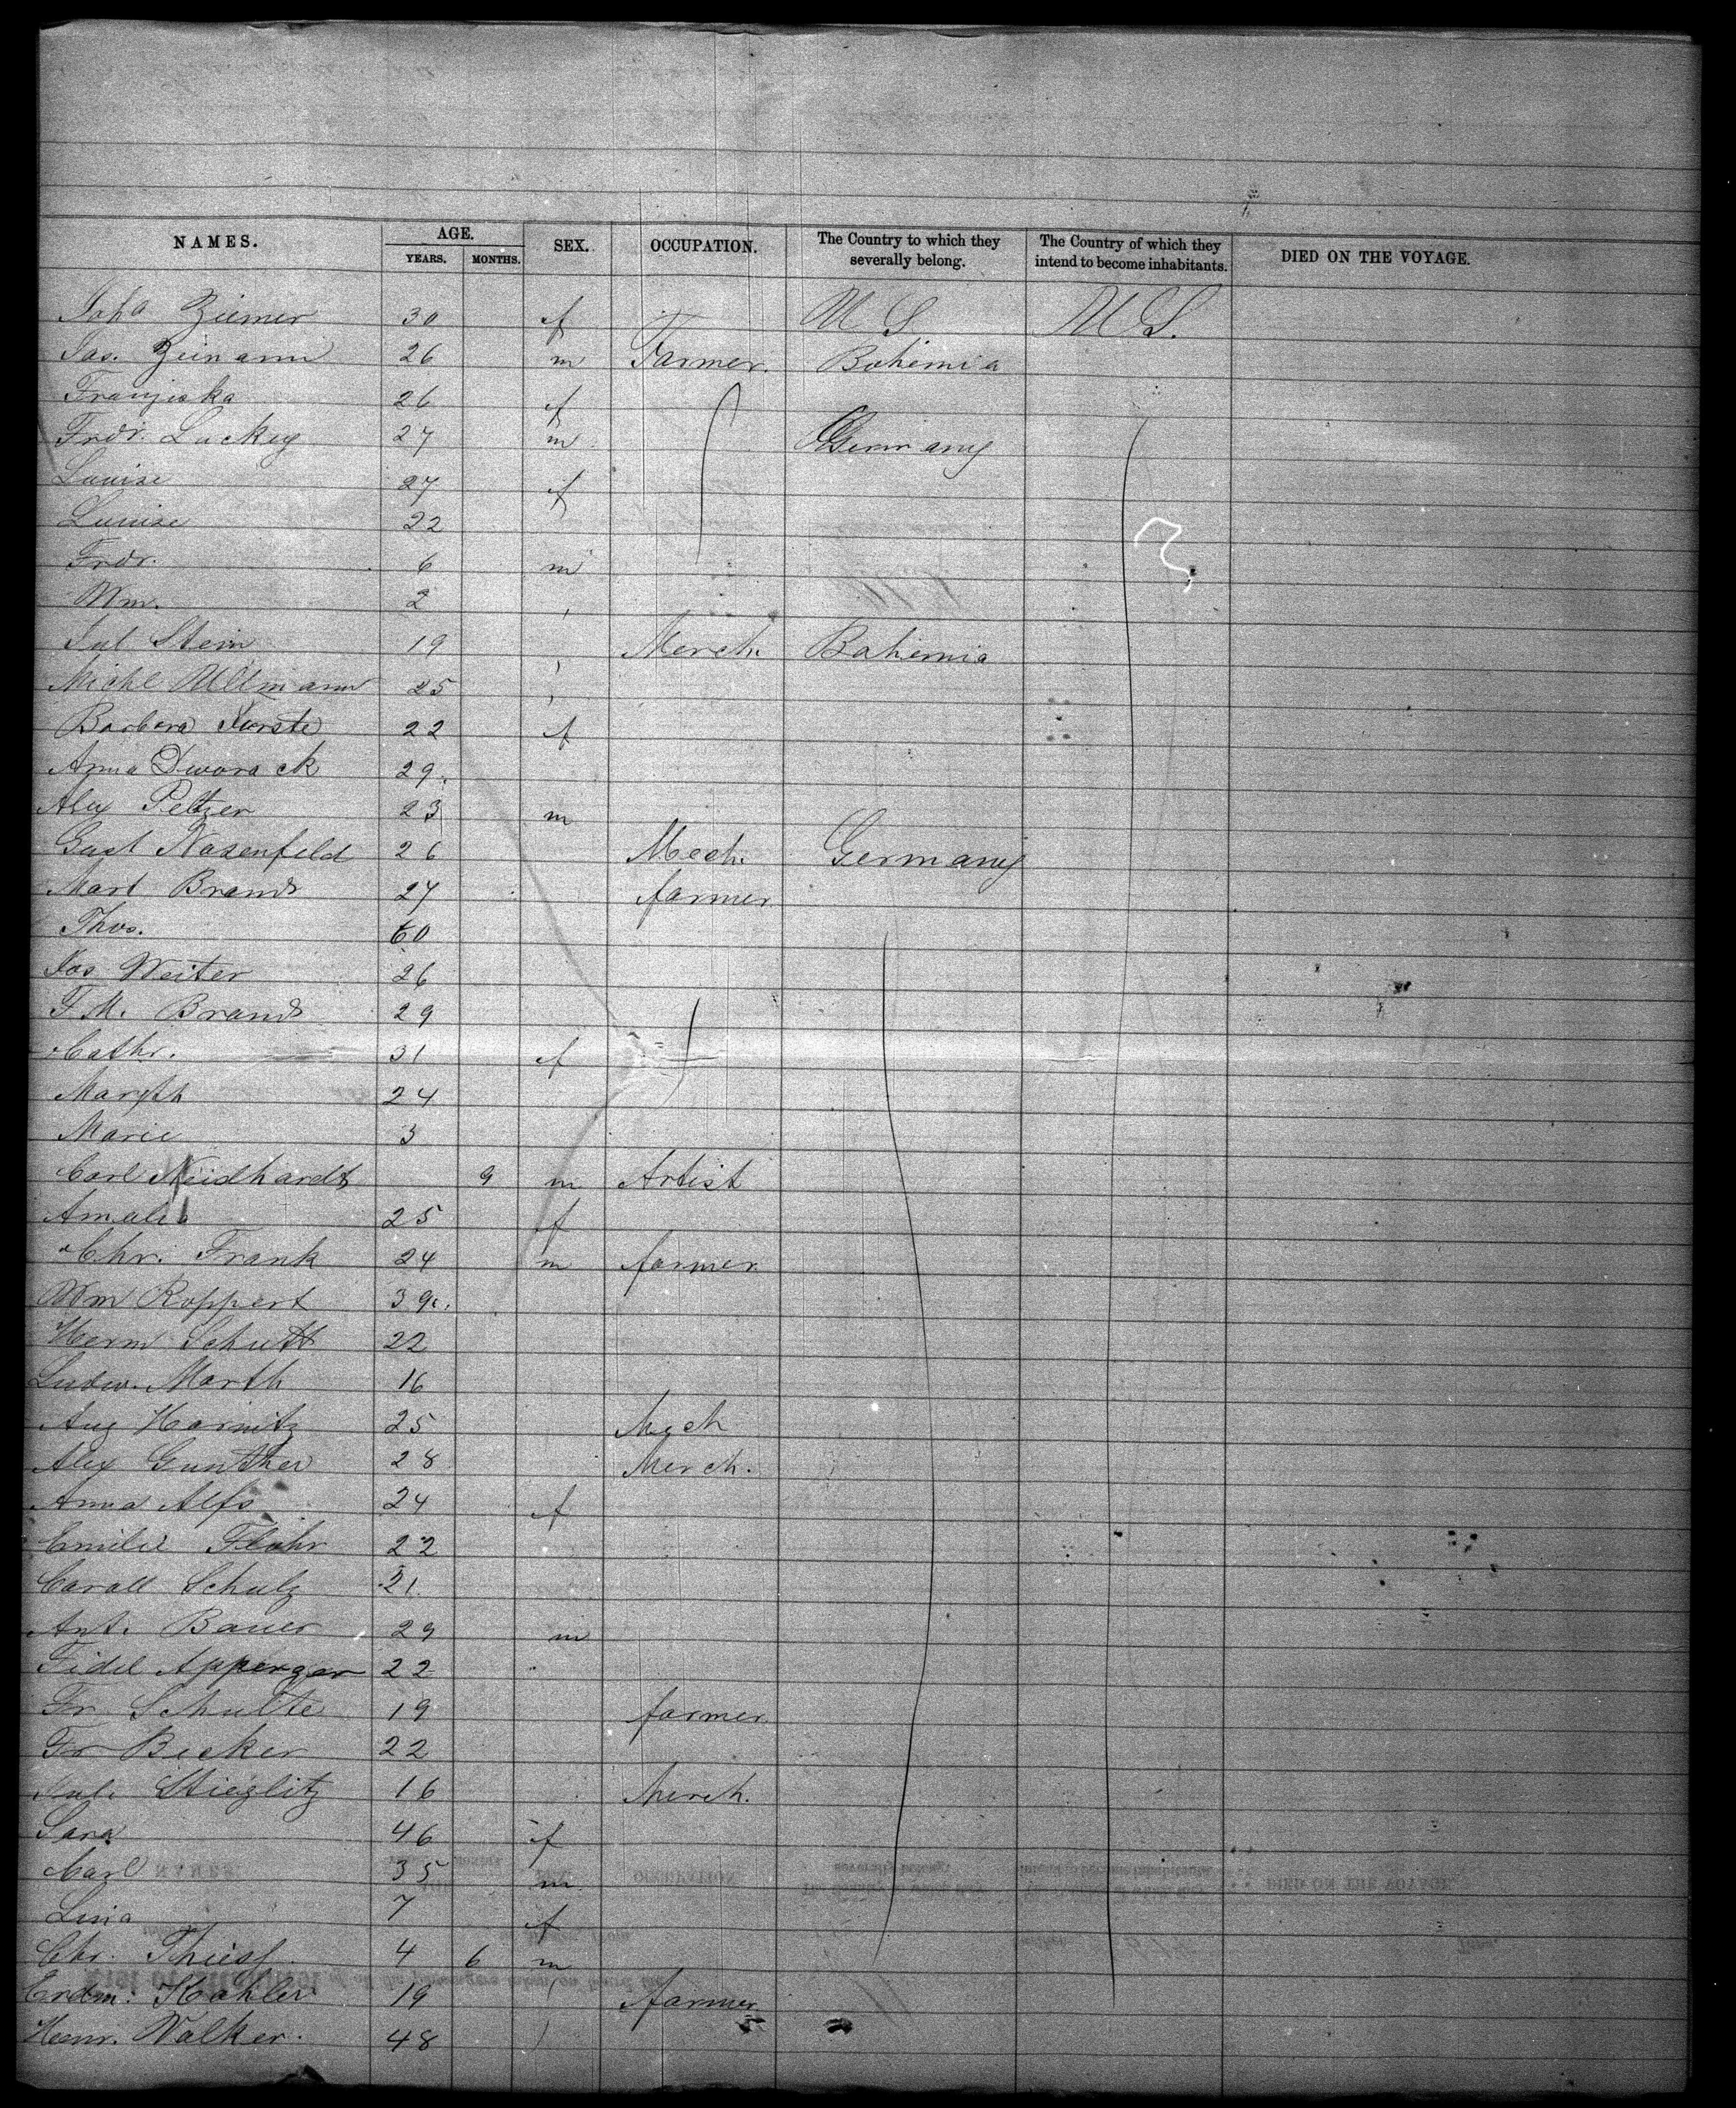 NAMES. AGE. YEARS. MONTHS. SEX. OCCUPATION. The Country to which they severally belong. The Country of which they intend to become inhabitants. DIED ON THE VOYAGE.
Ziemer 30 f U S U S.
Jos. 26 m Farmer. Bohemia
Franziska 26 f
Frdr. Luckey 27 m Germany
Louise 27 f
Louise 22
Frdr. 6 m
Wm. 2
Jul Stein 19 Merch. Bohemia
Michl Ullmann 25
Barbara 22 f
Anna Dworack 29.
Alex Peltzer 23 m
Gust Nasenfeld 26 Mech. Germany
Mart Brand 27 farmer
Thos. 60
Jos Weiter 26
F M. Brand 29
Cathr. 31 f
Margth 24
Marie 3
Carl Neidhardt 9 m Artist
Amalie 25 f
Chr. Frank 24 m farmer
Wm Roppert 39
Herm Schutt 22
Ludw. Marth 16
Aug Harnitz 25 Mech
Alex Gunther 28 Merch.
Anna Alfs 24 f
Emilie Flohr 22
Schulz 21
Ant. Bauer 29 m
Fidel Apperger 22
Fr Schulte 19 farmer
Fr Becker 22
Jul. Stieglitz 16 Merch.
Sara 46 f
Carl 35 m
Lina 7 f
Chr. Thies 4 6 m
Erdm. Kohler 19 farmer
Henr. Walker. 48